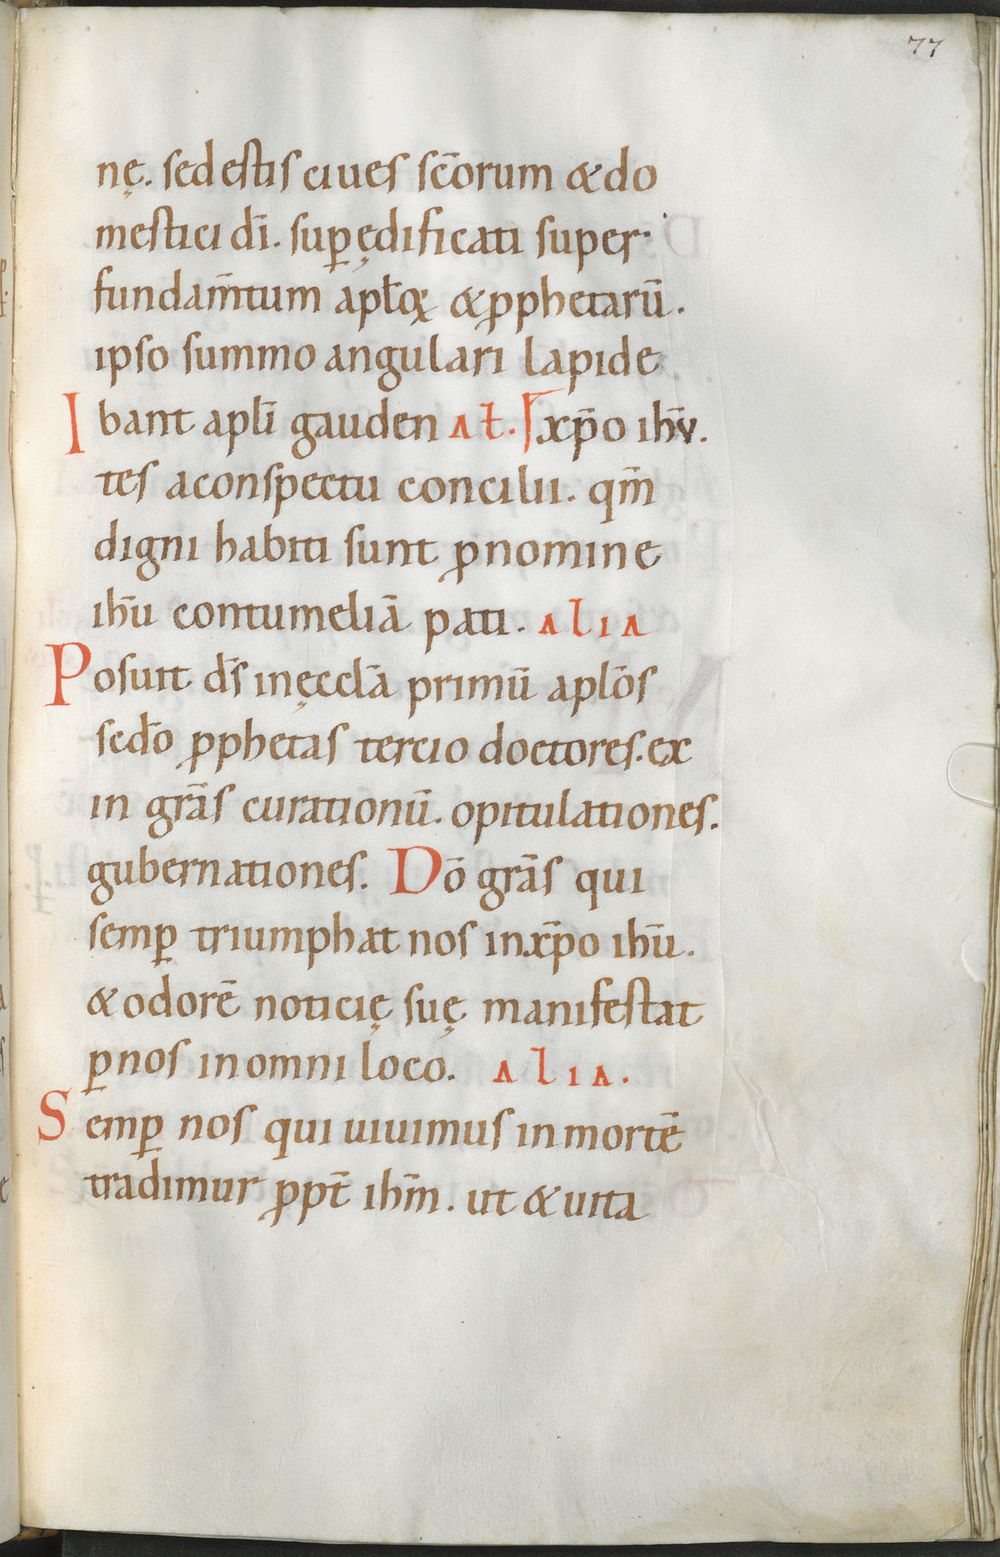 77
nę. sed estis ciues sc̄orum & do
mestici dī. sup̱ ędificati super
fundam̄tum apl̄oꝝ & ꝓphetarū.
ipso summo angulari lapide
Ibant apl̄i gauden al̄. xp̄o ih̄v.
tes a conspectu concilii. qm̄
digni habiti sunt ꝓ nomine
ih̄u contumeliā pati. alia
Posuit d̄s in ęccl̄a primū apl̄os
sed̄o ꝓphetas tercio doctores. ex
in gr̄as curationū. opitulationes.
gubernationes. Dō gr̄as qui
semꝑ triumphat nos in xp̄o ih̄u.
& odorē noticię suę manifestat
ꝑ nos in omni loco. alia.
Semꝑ nos qui uiuimus in mortē
tradimur ꝓpt̄ ih̄m. ut & uita